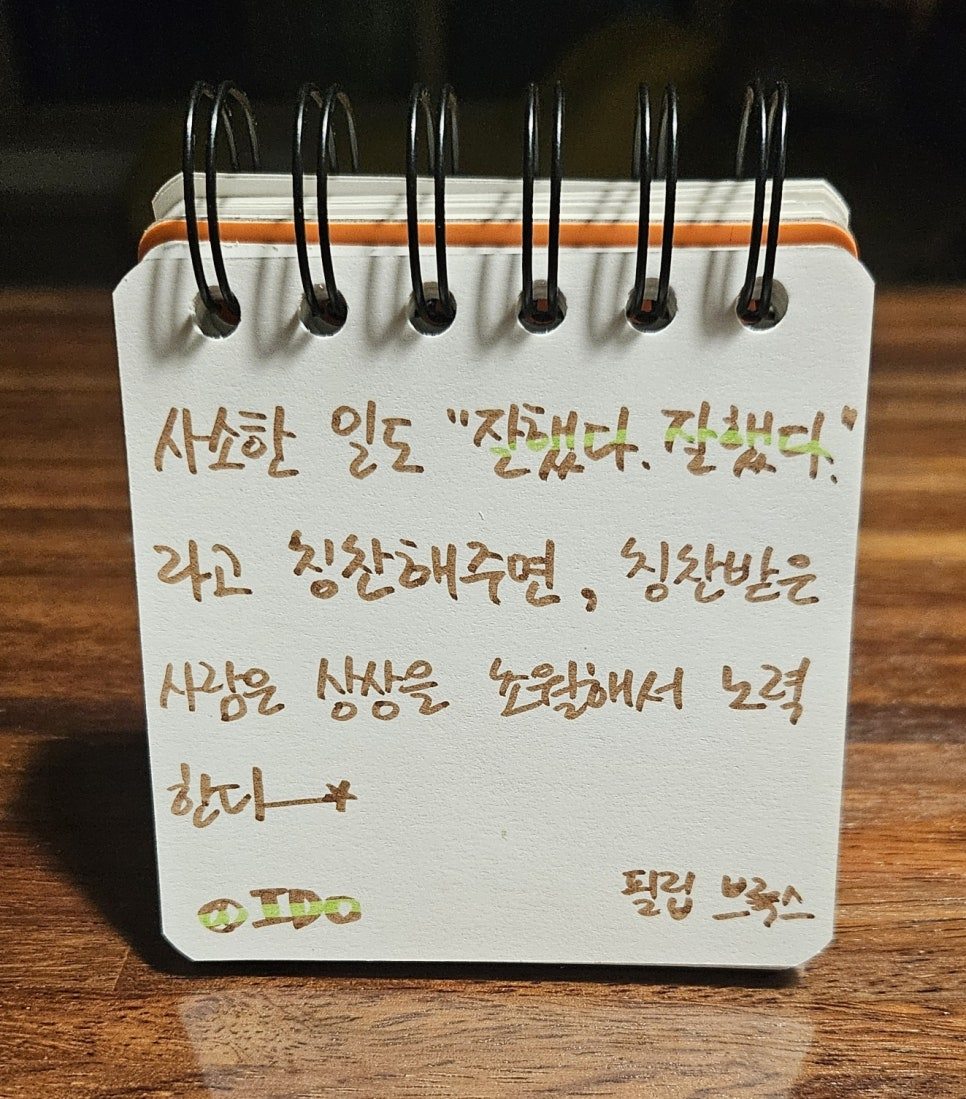 사소한 일도 "잘했다. 잘했다."
라고 칭찬해주면, 칭찬받은
사람은 상상을 초월해서 노력
한다
@IDo
필립 브룩스